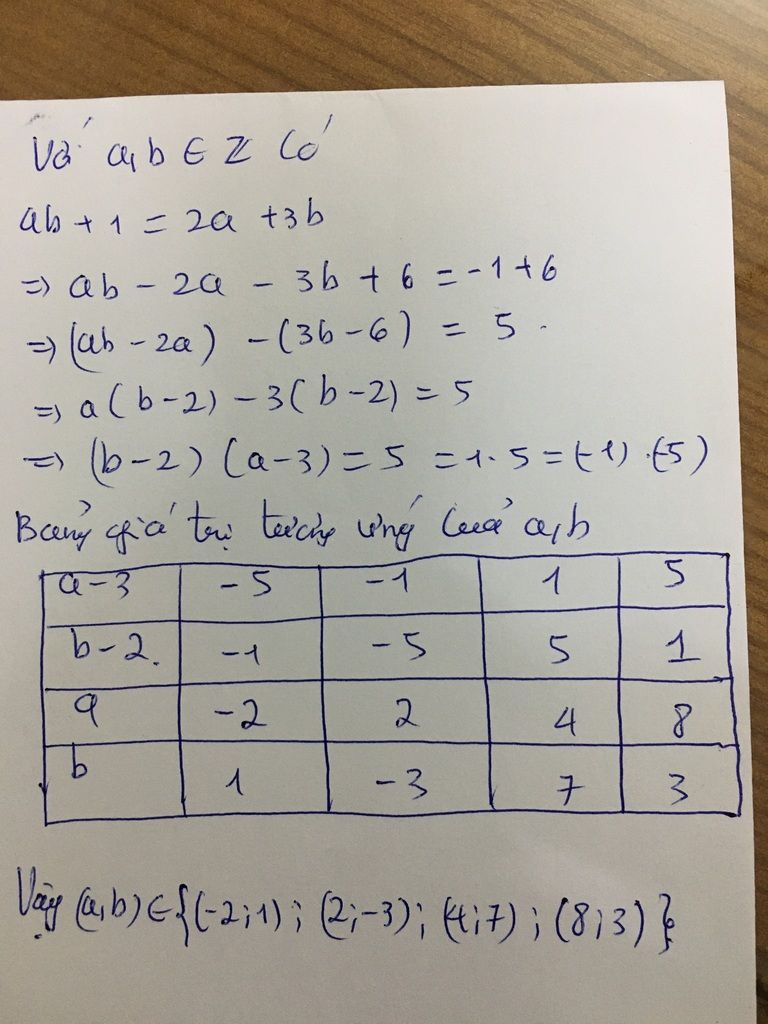 Với a,b ∈ ℤ Có
ab + 1 = 2a + 3b
=> ab - 2a - 3b + 6 = -1 + 6
=> (ab - 2a) - (3b - 6) = 5.
=> a(b-2) - 3(b-2) = 5
=> (b-2)(a-3) = 5 = 1.5 = (-1).(-5)
Bảng giá trị tương ứng của a,b
a-3 -5 -1 1 5
b-2. -1 -5 5 1
a -2 2 4 8
b 1 -3 7 3
Vậy (a,b) ∈ {(-2;1); (2;-3); (4;7); (8;3)}